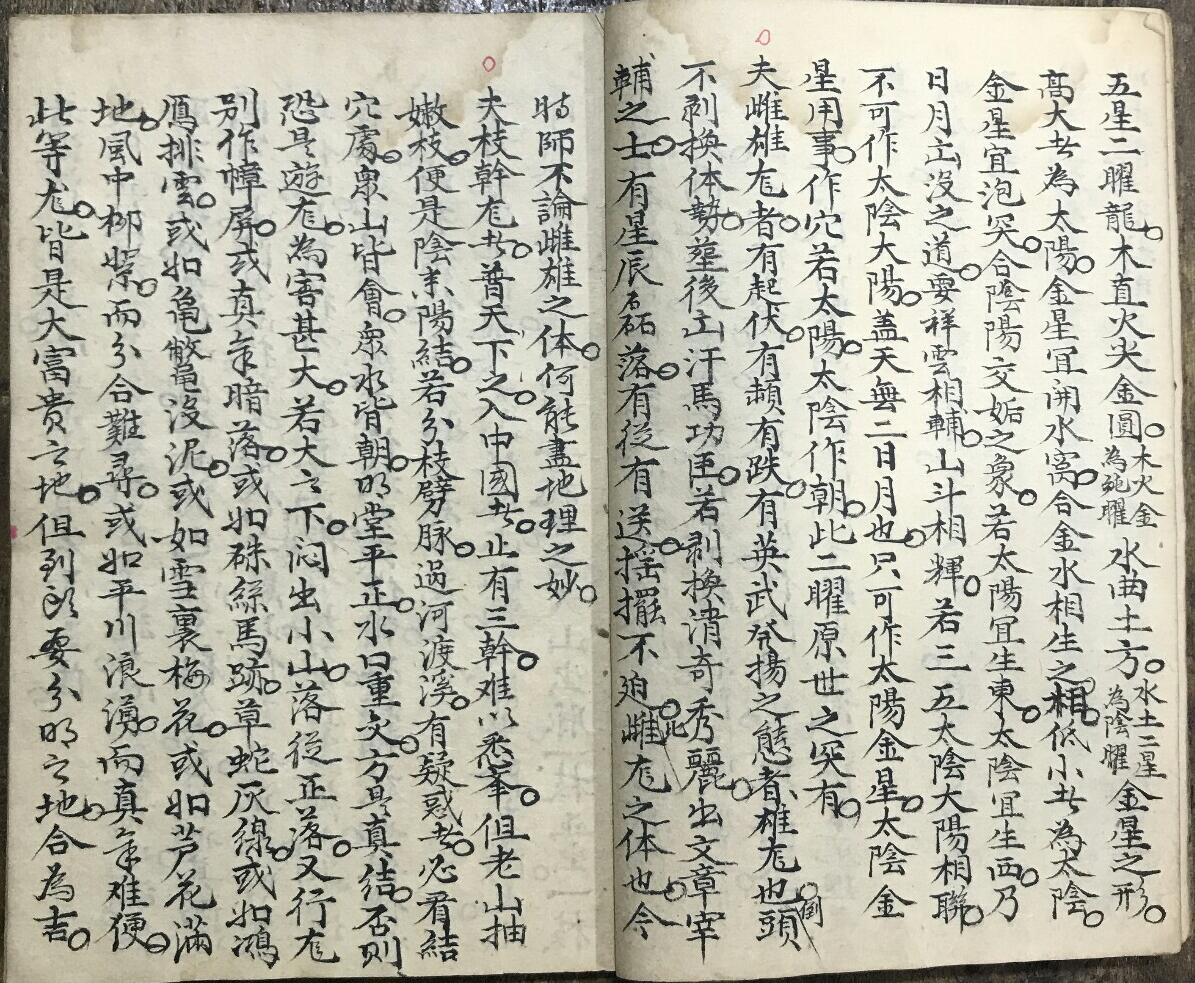 五星二曜龍。木直火尖金圓。木火金為純曜水曲土方。水土二星為陰曜金星之形。
高大者為太陽。金星宜開水窩。合金水相生之相。低小者為太陰。
金星宜泡突。合陰陽交姤之象。若太陽宜生東。太陰宜生西。乃
日月出沒之道。要祥雲相輔。山斗相輝。若三五太陰大陽相聯。
不可作太陰大陽。盖天無二日月也。只可作太陽金星。太陰金
星用事。作穴若太陽。太陰作朝。此二曜原世之突有。
夫雌雄龙者。有起伏。有頓有跌。有英武發揚之態者。雄龙也。倒頭
不剥換体勢。塟後出汗馬功臣。若剥換清奇秀麗。出文章宰
輔之士。有星辰磊落。有從有送。揺擺不廹。此雌龙之体也。今
時師不論雌雄之体。何能盡地理之妙。
夫枝幹龙者。普天下之。入中國者。止有三幹。难以悉举。但老山抽
嫩枝。便是陰来陽結。若分枝劈脉。過河渡溪。有疑惑者。必看結
穴處。衆山皆會。衆水皆朝。明堂平正。水口重交。方是真結。否則
恐是遊龙。為害甚大。若大云下。闷出小山。落從正落。又行龙
別作幛屏。或真氣暗落。或如硃絲馬跡。草蛇灰線。或如鴻
鴈排雲。或如亀鱉龟沒泥。或如雪裏梅花。或如芦花滿
地。風中柳絮。而分合難尋。或如平川浪湧。而真氣难便。
此等龙。皆是大富貴之地。但到頭要分明之地。合為吉。